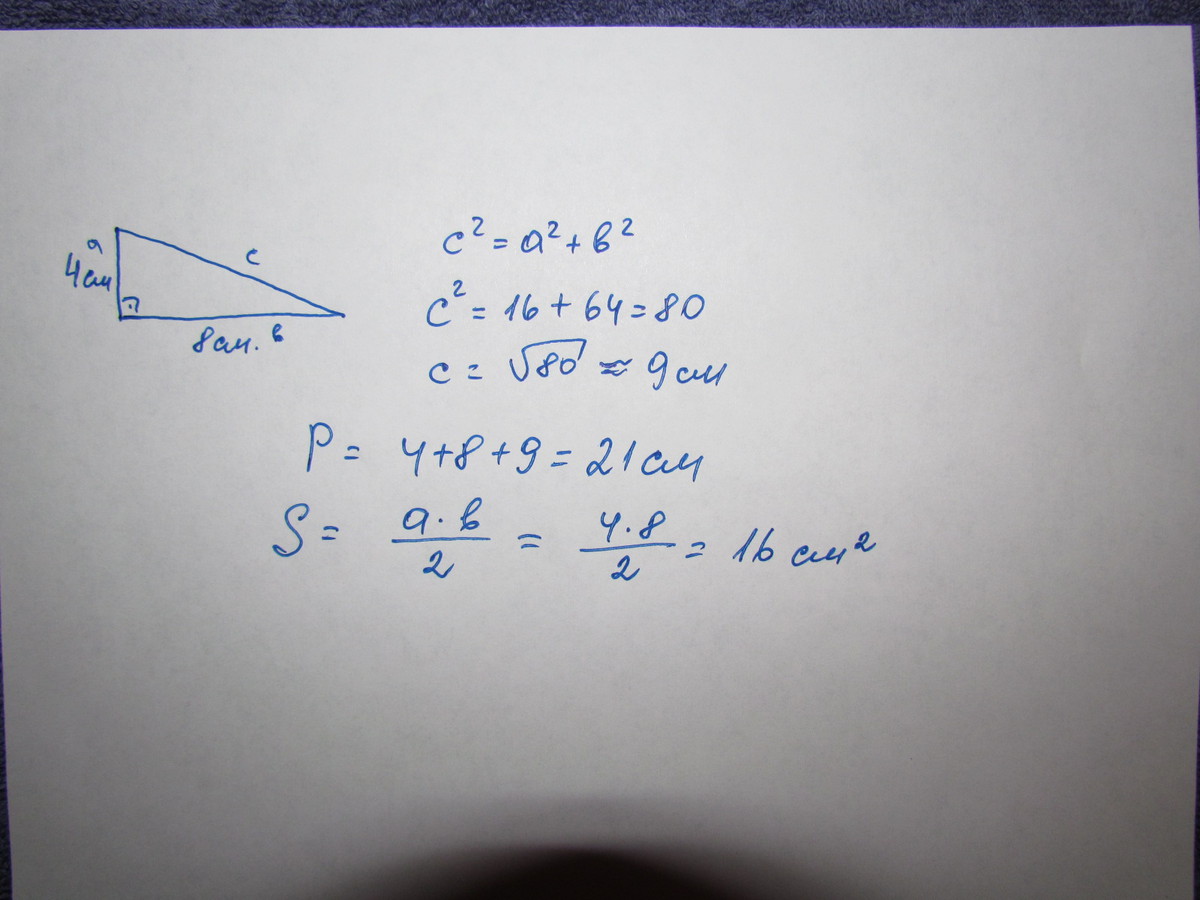 а
4см
с
8см. в
c² = a² + в²
c² = 16 + 64 = 80
c = √80 ≈ 9 см
P = 4 + 8 + 9 = 21 см
S = a · в / 2 = 4 · 8 / 2 = 16 см²